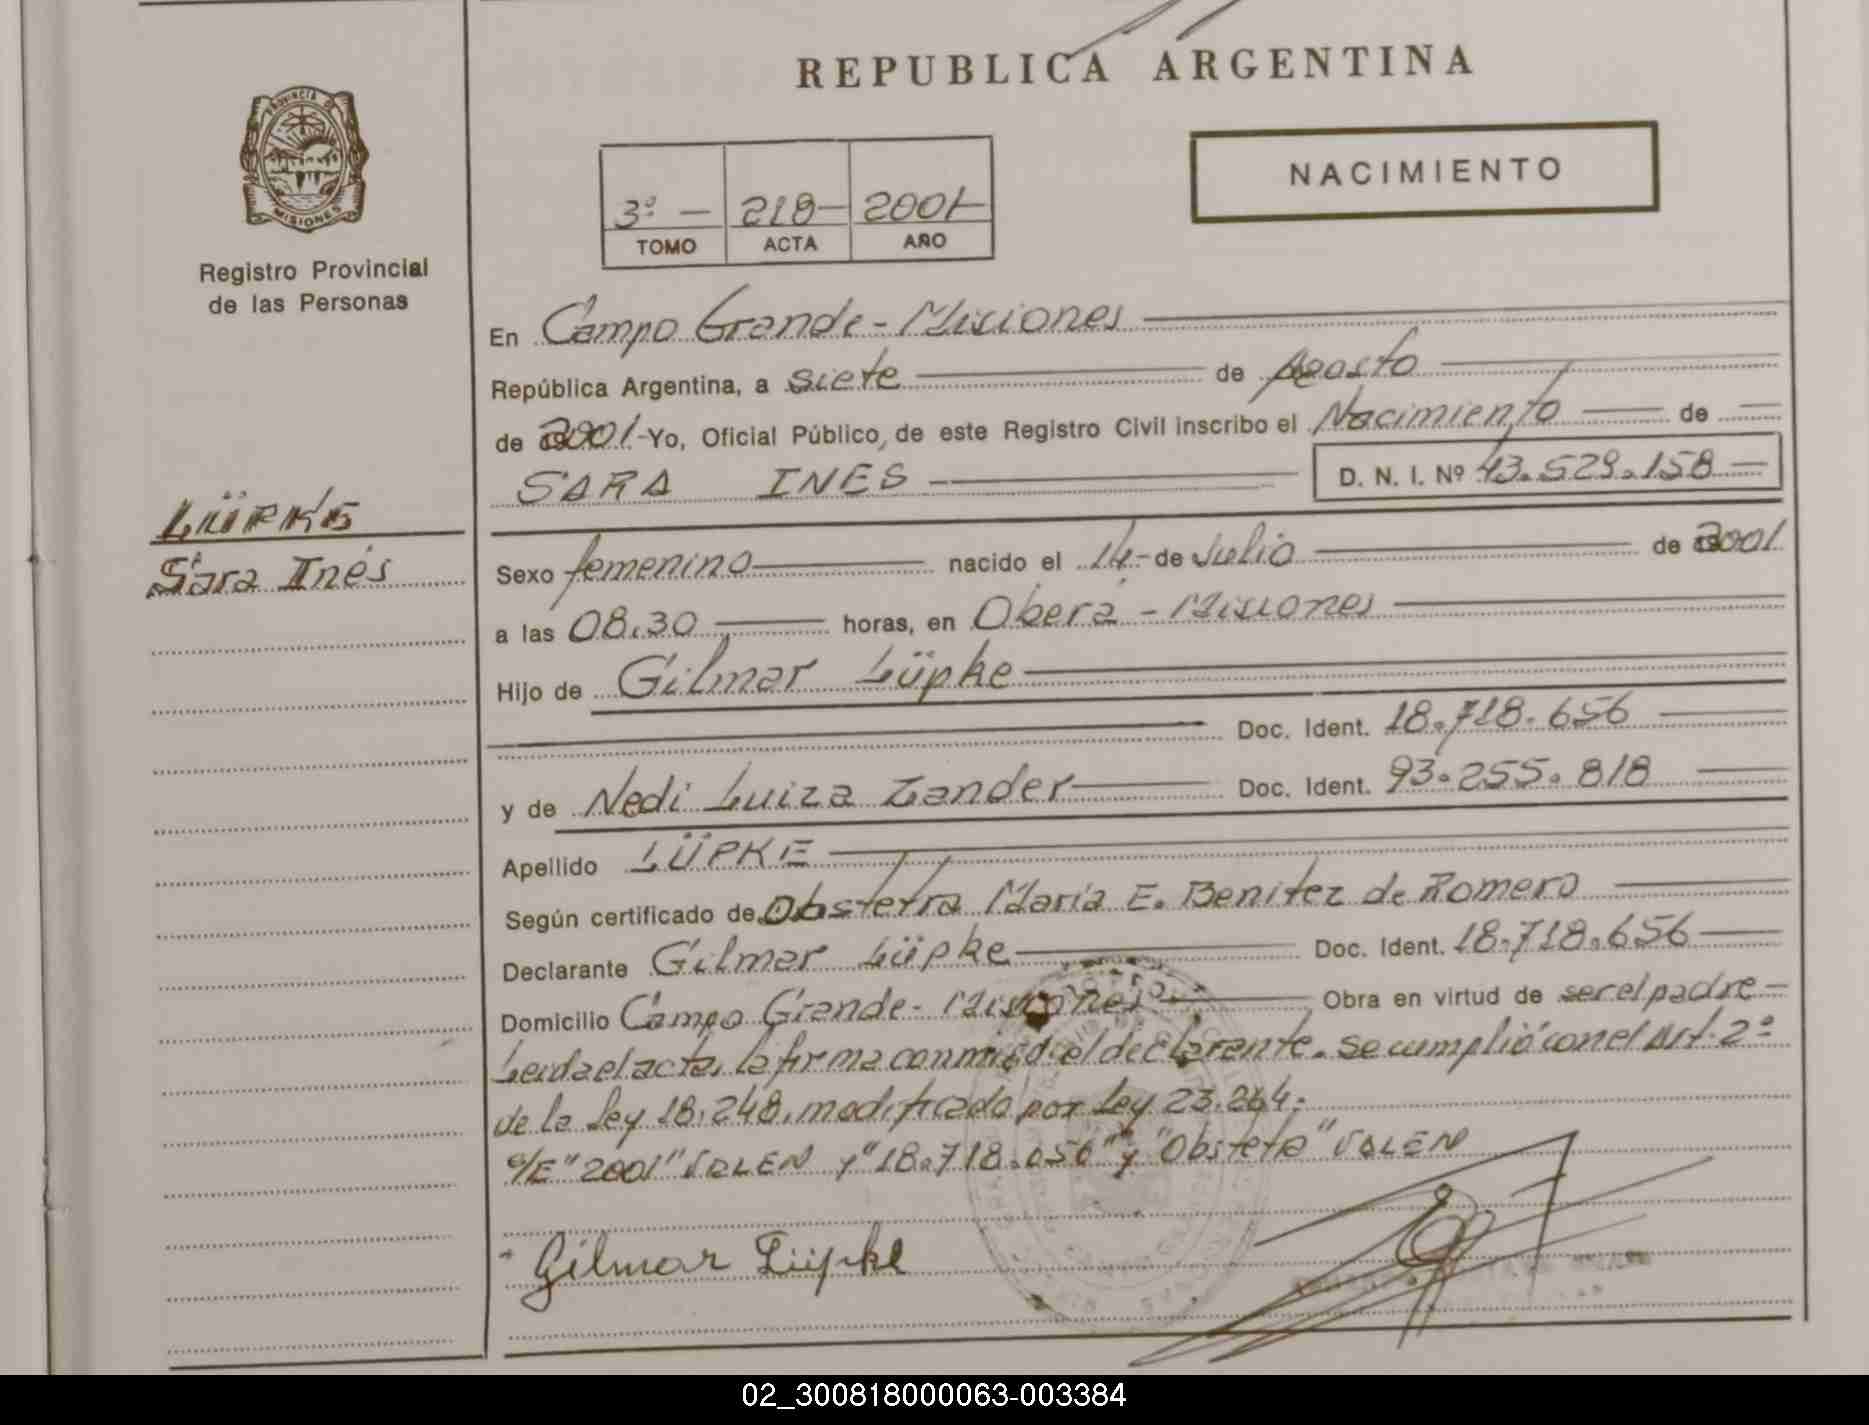 REPUBLICA ARGENTINA
PROVINCIA DE
MISIONES
Registro Provincial
de las Personas
NACIMIENTO
3º - 218- 2001-
TOMO ACTA AÑO
En Campo Grande - Misiones
República Argentina, a siete de Agosto
de 2001-Yo, Oficial Público, de este Registro Civil inscribo el Nacimiento de
SARA INES D. N. I. Nº 43.529.158
LÜPKE
Sara Inés
Sexo femenino nacido el 14- de Julio de 2001
a las 08.30 horas, en Oberá - Misiones
Hijo de Gilmar Lüpke
Doc. Ident. 18.718.656
y de Nedi Luiza Zander Doc. Ident. 93.255.818
Apellido LÜPKE
Según certificado de Obstetra María E. Benitez de Romero
Declarante Gilmar Lüpke Doc. Ident. 18.718.656
Domicilio Campo Grande - Misiones Obra en virtud de ser el padre -
Leida el acta, la firma conmigo el declarante. Se cumplió con el Art. 2º
de la Ley 18.248, modificado por Ley 23.264.
S/E "2001" VALEN y "18.718.656" y "Obstetra" VALEN
Gilmar Lüpke
02_300818000063-003384